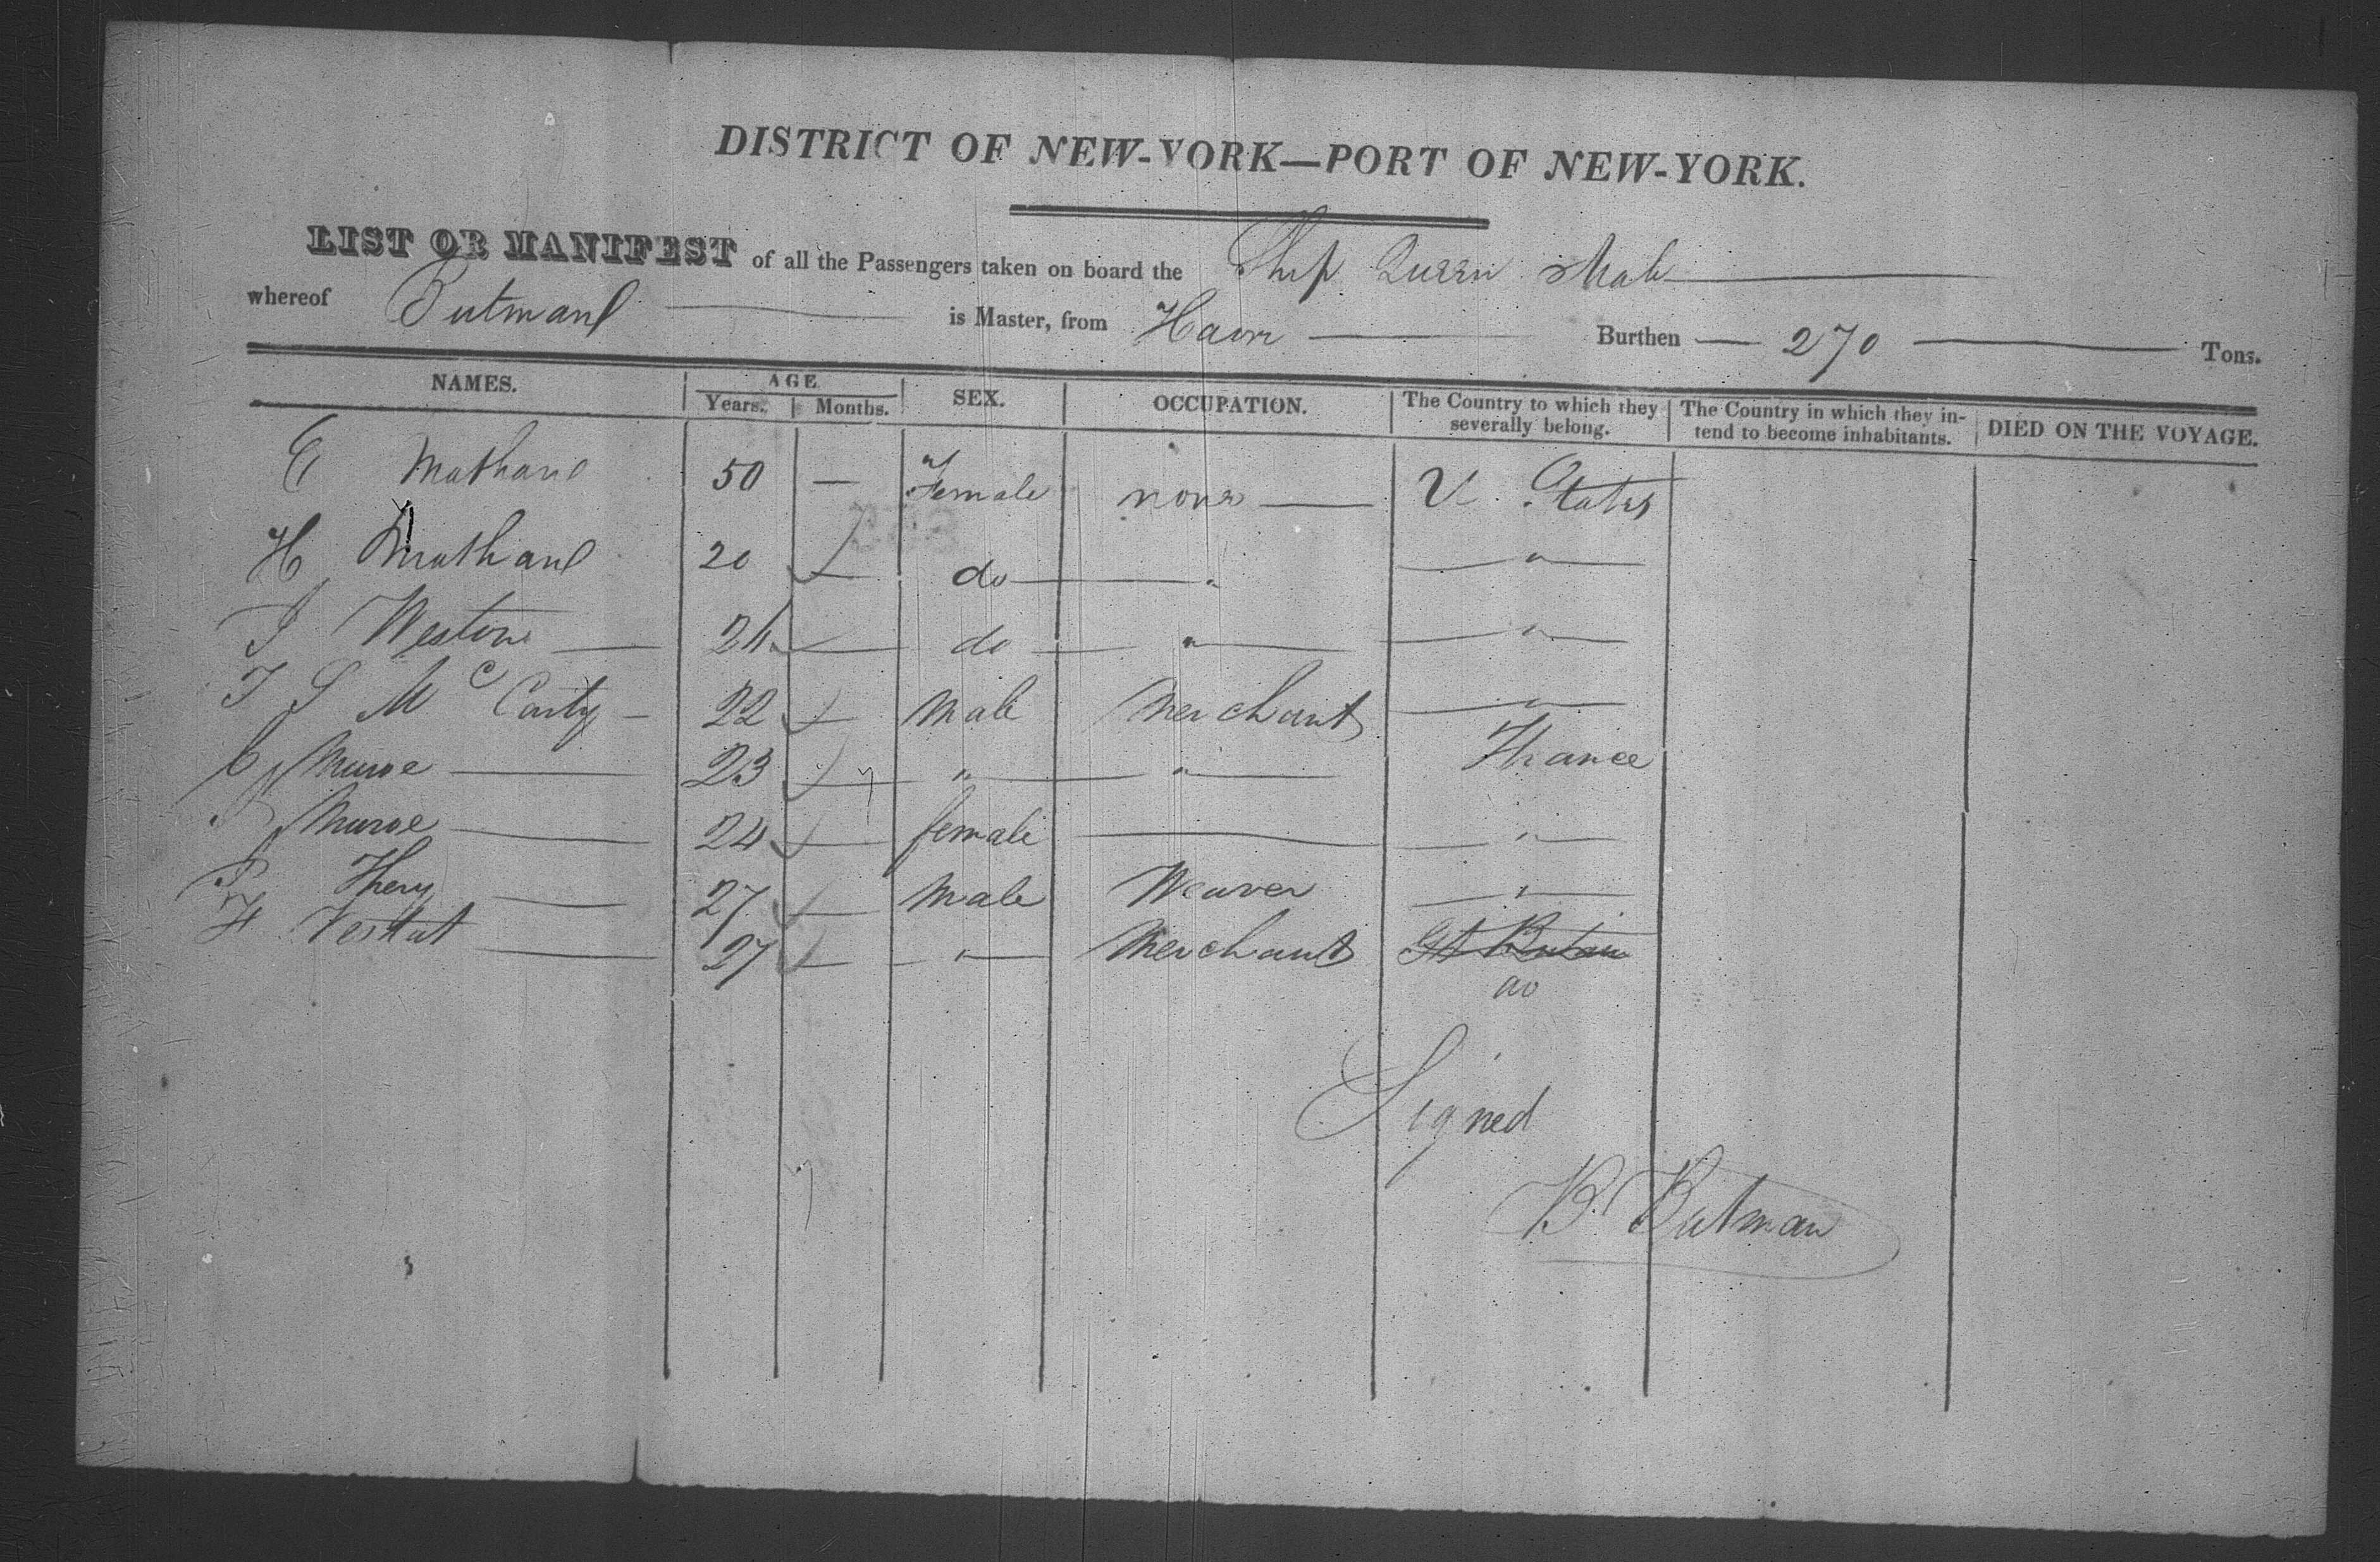 DISTRICT OF NEW-YORK—PORT OF NEW-YORK.
LIST OR MANIFEST of all the Passengers taken on board the Ship Queen Mab
whereof Butman is Master, from Havre Burthen — 270 — Tons.
NAMES. AGE SEX. OCCUPATION. The Country to which they severally belong. The Country in which they in-tend to become inhabitants. DIED ON THE VOYAGE.
Years. Months.
E 50 — Female none — U. States
H 20 — do — " — " —
J Weston — 24 — do — " — " —
J S Mc Carty — 22 — male Merchant — " —
Muroe — 23 — " — " — France
Muroe — 24 — female — — " —
Thery — 27 — Male Weaver — " —
27 — — " — Merchant Gt Britain
do
Signed
B. Butman